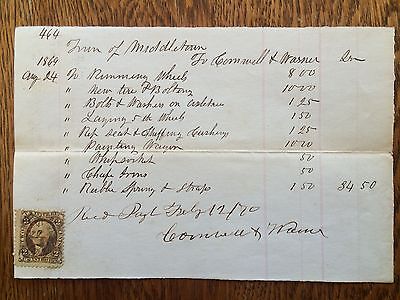 464
Town of Middletown
1869 To Cornwell & Warner Dr
Aug 24 To Rimming Wheels 8 00
" New tire & Bolting 10 00
" Bolts & Washers on axletree 1 25
" Laying 5th Wheel 1 50
" Rep seat & Stuffing Cushing 1 25
" Painting Wagon 10 00
" Whip socket 50
" Chafe Irons 50
" Rubber Spring & Straps 1 50 34 50
Recd Payt Feby 12/70
Cornwell & Warner